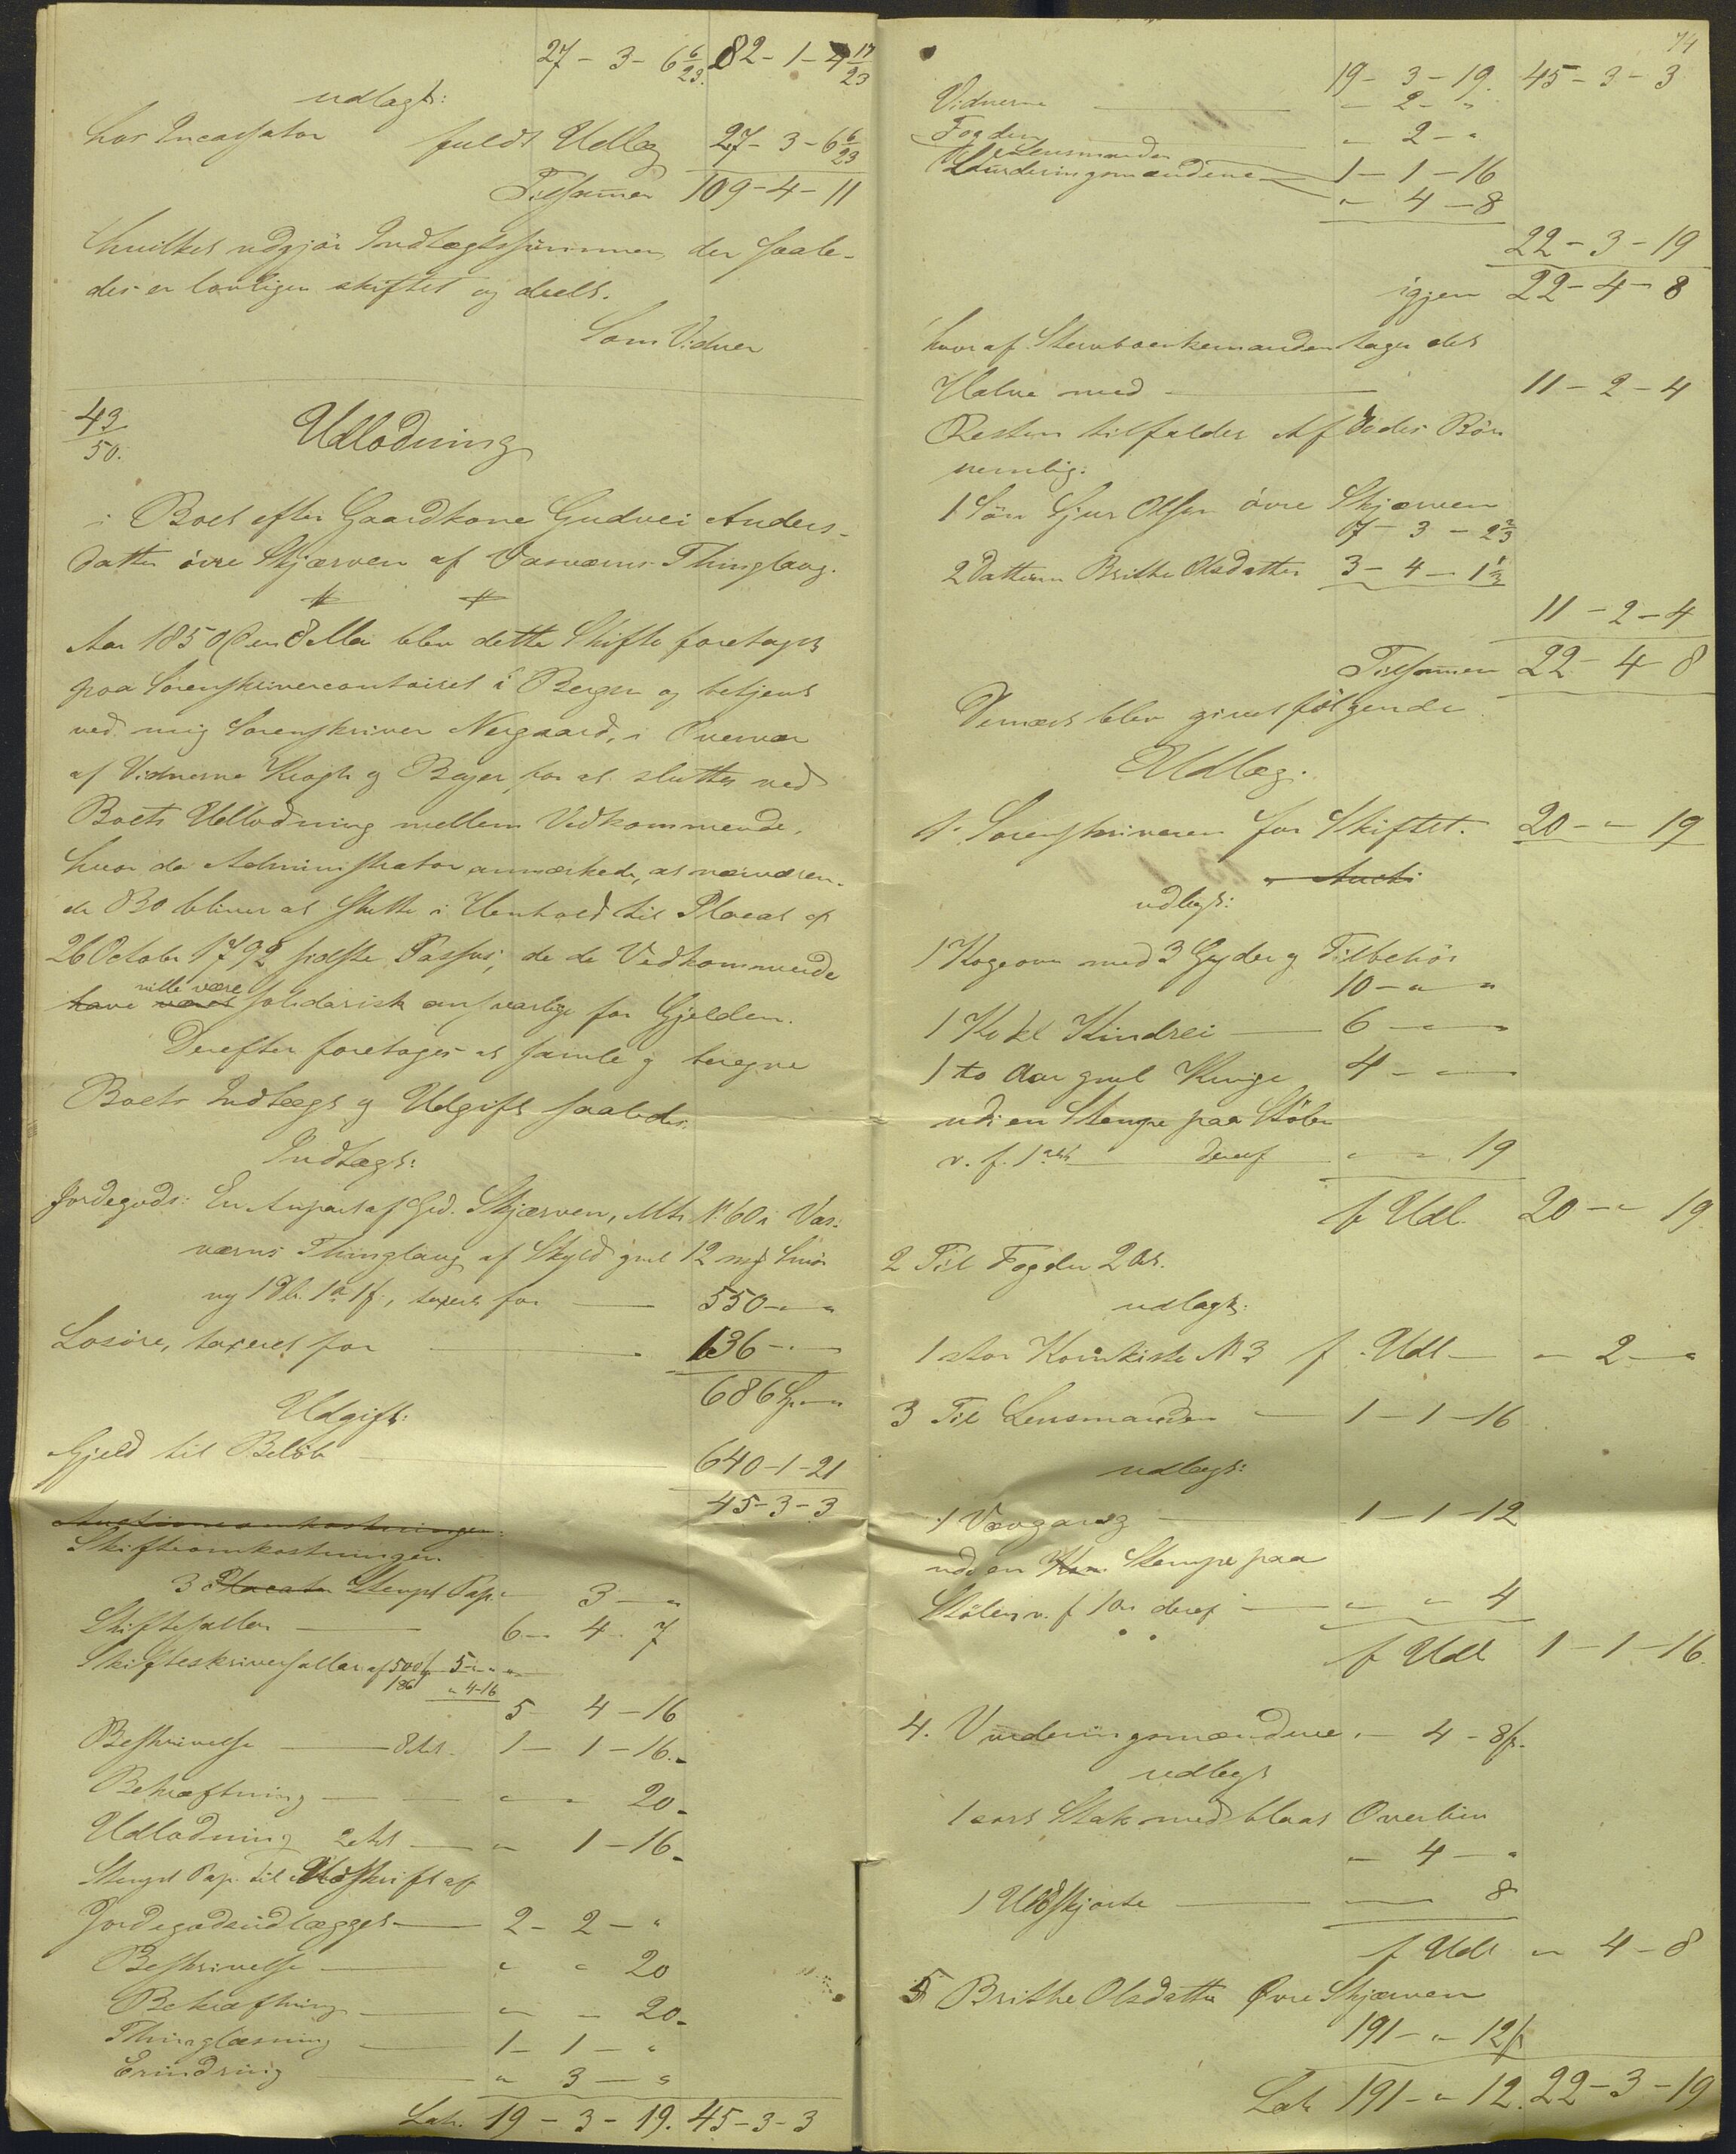 27 - 3 - 6 6/23. 82 - 1 - 4 17/23
udlagt:
hos Incassator fuldt Udlæg 27 - 3 - 6 6/23
Tilsammen 109 - 4 - 11
hvilket udgjør Indtægtssummen, der saale-
des er lovligen skiftet og deelt.
Som Vidner
43/50.
Udlodning
i Boet efter Gaardkone Gudvei Anders-
datter øvre Skjærven af Vasværns Thinglaug.
Aar 1850 den 8 Mai blev dette Skifte foretaget
paa Sorenskrivercontoiret i Bergen og betjent
ved mig Sorenskriver Nergaard, i Overvær
af Vidnerne Krogh og Bager, for at sluttes ved
Boets Udlodning mellem Vedkommende,
hvor da Administrator anmærkede, at nærværen-
de Bo bliver at slutte i Henhold til Placat af
26 October 1792 sidste Passus, da de Vedkommende
ville være
have været solidarisk ansvarlige for Gjelden.
Derefter foretoges at samle og beregne
Boets Indtægt og Udgift saaledes.
Indtægt:
Jordegods: En Anpart af Grd. Skjærven, Mtr. N. 60 i Vas-
værns Thinglaug af Skyld gml 12 mg Smør
ny 1 db. 1 ort 1 s., taxeret for 550 - " - "
Losøre, taxeret for 136 - " - "
686 Sp. - "
Udgift:
Gjeld til Beløb 640 - 1 - 21
45 - 3 - 3
Auctionsomkostninger:
Skifteomkostninger.
3 Placater Stempl. Pap. " 3 - "
Skiftesallar 6 - 4 - 7
Skifteskriversallar af 500 5 - " - "
186 " 4 - 16
5 - 4 - 16
Beskrivelse 8 Ark. 1 - 1 - 16.
Bekræftning " - " 20.
Udlodning 2 Ark " 1 - 16.
Stempl. Pap. til Udskrift af
Jordegodsudlægget 2 - 2 - "
Beskrivelse " " 20
Bekræftning " - " 20.
Thinglæsning 1 - 1 - "
Erindring " 3 - "
Lat. 19 - 3 - 19. 45 - 3 - 3
74
19 - 3 - 19. 45 - 3 - 3
Vidnerne " 2 - "
Fogden " 2 - "
Lensmanden 1 - 1 - 16
Vurderingsmændene " 4 - 8
22 - 3 - 19
igjen 22 - 4 - 8
hvoraf Stervboenkemanden tager det
Halve med 11 - 2 - 4
Resten tilfalder Afdødes Børn
nemlig:
1 Søn Sjur Olsen øvre Skjærven
7 - 3 - 2 2/3
2 Datteren Brithe Olsdatter 3 - 4 - 1 1/3
11 - 2 - 4
Tilsammen 22 - 4 - 8
Dernæst blev givet følgende
Udlæg.
1. Sorenskriveren for Skiftet. 20 - " - 19
Aucti
udlagt:
1 Kogeovn med 3 Gryder og Tilbehør
10 - " - "
1 Ko kl Kindrei 6 - " - "
1 to Aar gml Kvige 4 - " - "
udi en Stampe paa Stølen
v. f. 1 ort deraf " - " 19
f Udl. 20 - " 19
2 Til Fogden 2 ort.
udlagt:
1 stor Kornkiste N. 3 f. Udl " 2 - "
3 Til Lensmanden 1 - 1 - 16
udlagt:
1 Vævgang 1 - 1 - 12
udi en Stampe paa
Stølen v. f 1 ort deraf " " 4
f Udl 1 - 1 - 16.
4. Vurderingsmændene " - 4 - 8 s.
udlagt
1 sort Stak med blaat Overliv
" 4 - "
1 Uldskjorte " 8
f Udl " 4 - 8
5 Brithe Olsdatter Øvre Skjærven
191 - " 12 s
Lat. 191 - " 12. 22 - 3 - 19